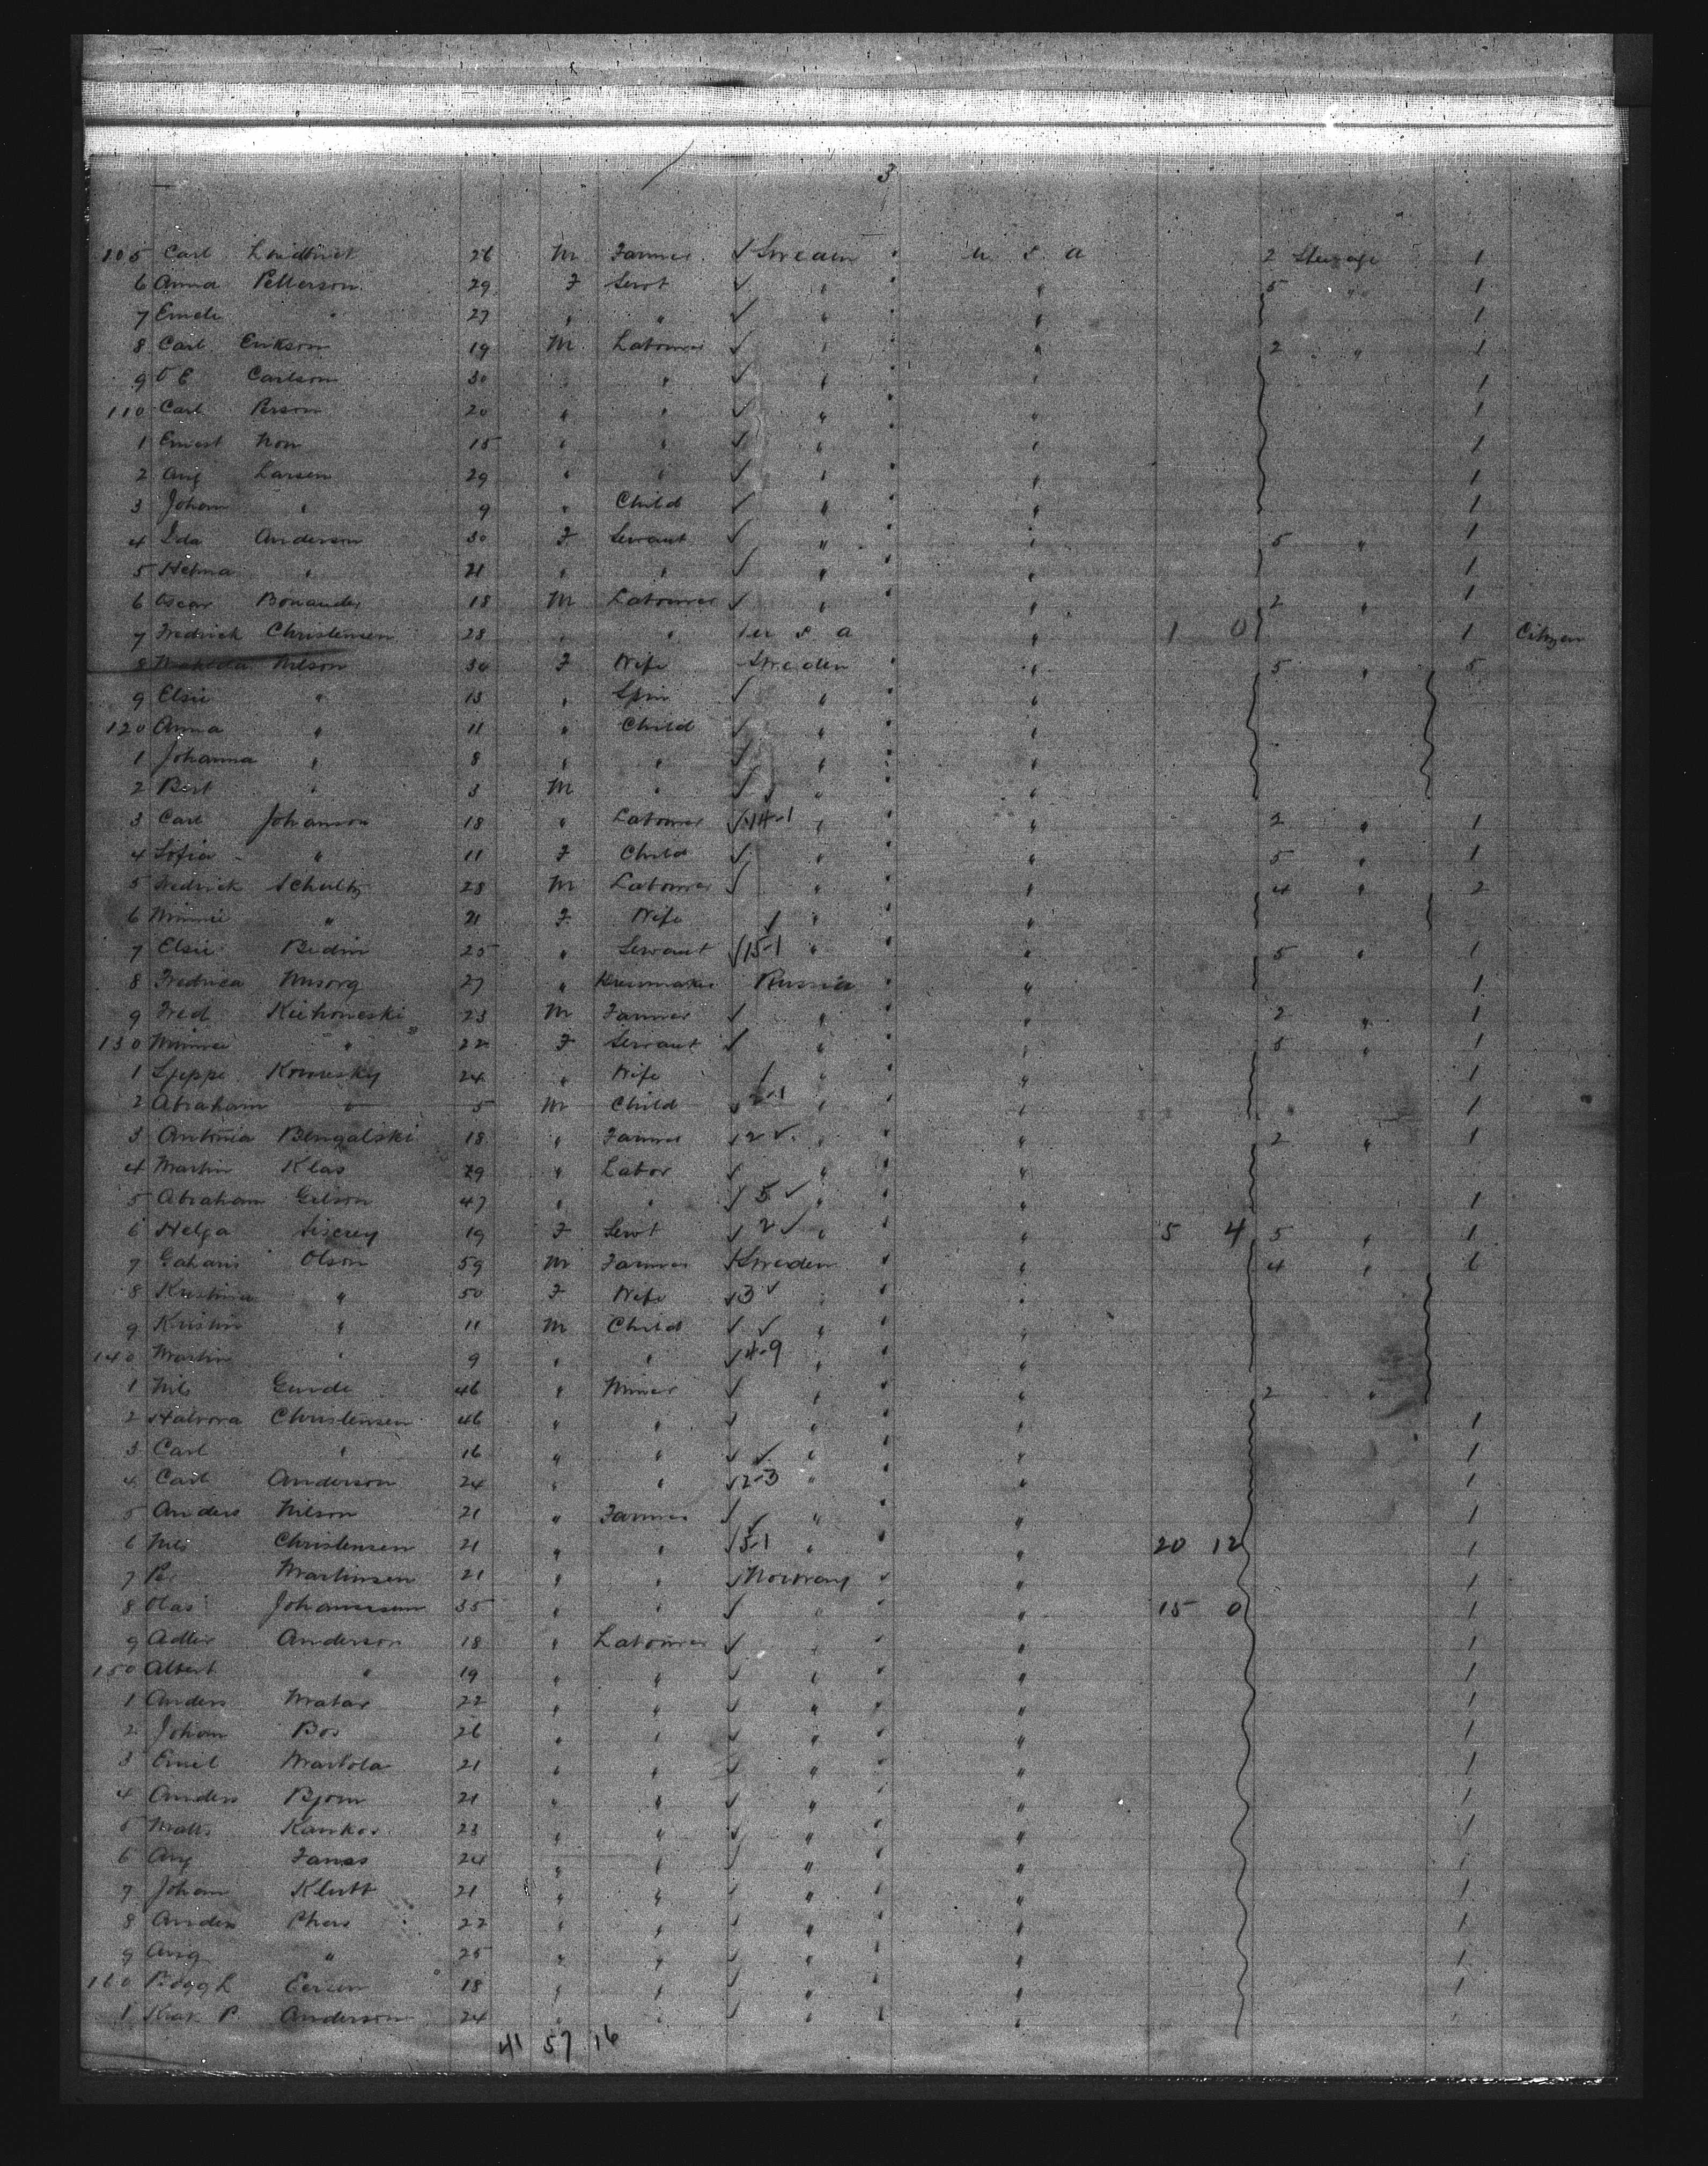 3
105 Carl Lindkvist 26 M Farmer Sweden U S A 2 Steerage 1
6 Anna Petterson 29 F Servt " " 5 " 1
7 Emele " 27 " " " " 1
8 Carl Erikson 19 M Labourer " " 2 " 1
9 O E Carlson 30 " " " " 1
110 Carl Person 20 " " " " 1
1 Ernest 15 " " " " 1
2 Aug Larsen 29 " " " " 1
3 Johan " 9 " Child " " 1
4 Ida Anderson 30 F Servant " " 5 " 1
5 Helma " 21 " " " " 1
6 Oscar Bonander 18 M Labourer " " 2 " 1
7 Fredrick Christensen 28 " " U S A " 1 0 1 Citizen
8 Nilson 30 F Wife Sweden " 5 " 5
9 Elsie " 13 " Spin " "
120 Anna " 11 " Child " "
1 Johanna " 8 " " " "
2 Bert " 3 M " " "
3 Carl Johanson 18 " Labourer 14-1 " " 2 " 1
4 Sofia " 11 F Child " " 5 " 1
5 Fredrick Schultz 28 M Labourer " " 4 " 2
6 Minnie " 21 F Wife " "
7 Elsie Bedin 25 " Servant 15-1 " " 5 " 1
8 Fredrica 27 " Dressmaker Russia " 1
9 Fred 23 M Farmer " " 2 " 1
130 Minnie " 22 F Servant " " 5 " 1
1 24 " Wife " " 1
2 Abraham " 5 M Child " " 1
3 Antonia Bengalski 18 " Farmer 2 " " 2 " 1
4 Martin Klas 29 " Labor " "
5 Abraham Gelson 47 " " 5 " " 1
6 Helga 19 F Servt 2 " " 5 4 5 " 1
7 Olson 59 M Farmer Sweden " 4 " 6
8 Kristina " 50 F Wife 3 " "
9 Kristin " 11 M Child " "
140 Martin " 9 " " 4-9 " "
1 Nils 46 " Miner " " 2 "
2 Halvora Christensen 46 " " " " 1
3 Carl " 16 " " " " 1
4 Carl Anderson 24 " " 2-3 " " 1
5 Anders Nilson 21 " Farmer " " 1
6 Nils Christensen 21 " " 5-1 " " 20 12 1
7 Martinsen 21 " " Norway " 1
8 Olas Johannesen 35 " " " " 15 0 1
9 Anderson 18 " Labourer " " 1
150 Albert " 19 " " " " 1
1 Anders 22 " " " " 1
2 Johan Bos 26 " " " " 1
3 Emil 21 " " " " 1
4 Anders Bjorn 21 " " " " 1
5 Matts Kankos 23 " " " " 1
6 Aug 24 " " " " 1
7 Johan Klutt 21 " " " " 1
8 Anders 22 " " " " 1
9 Aug " 25 " " " " 1
160 18 " " " " 1
1 P. Anderson 24 " " " "
41 57 16